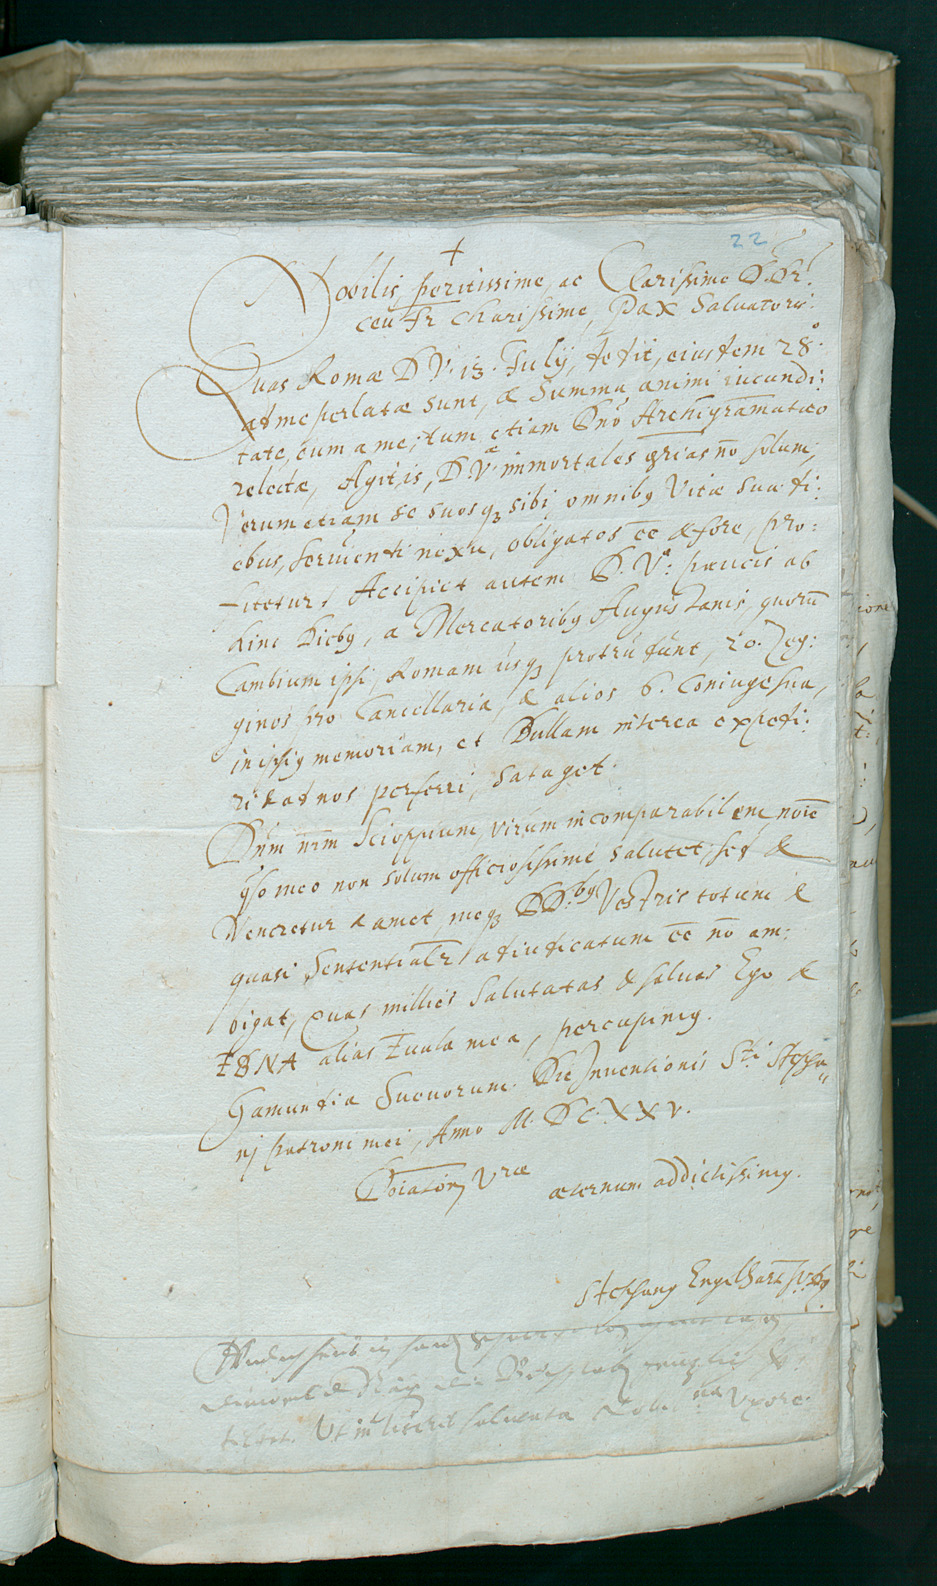 22
+
Nobilis, peritissime, ac Clarissime D. Dr.
ceu Fr charissime, Pax Salvatoris.
Quas Romæ D V. 13. July, dedit, eiusdem 28.º
ad me perlatæ sunt, & summa animi iucundi:
tate, cum a me, tum etiam Dno Archigrammatæo
relectæ, Agit is, D. Vᵃᵉ immortales gr̄ias nō solum,
Verum etiam se suosq₃ sibi omnibꝰ vitæ suæ di:
ebus, servienti nexu, obligatos ēē & fore, pro:
fitetur. Accipiet autem D. Vᵃ: paucis ab
hinc diebꝰ, a Mercatoribꝰ Augustanis, quorū
Cambium ipsi, Romam usq₃ protrudunt, 20. Zeg:
ginos pro Cancellaria, & alios 6. Coniuge sua,
in ipsiꝰ memoriam, et Bullam interea expedi:
ri & ad nos perferri, sataget.
Dnm nr̄m Scioppium, virum incomparabilem noīe
q̄so meo non solum officiosissime salutet, sed &
Veneretur & amet, meq₃ DD.bꝰ Vestris totum &
quasi sententialr̄ adiudicatum ēē nō am:
bigat, Quas millies salutatas & salvas Ego &
alias mea, percupimꝰ.
Gamundia Suevorum. Die Inventionis Sti. Stepha
nj patroni mei, Anno M. DC. XXV.
Doīatōnj Vræ
æternum addictissimꝰ.
Stephanꝰ Engelhart
Ut in literis salutata Uxore.